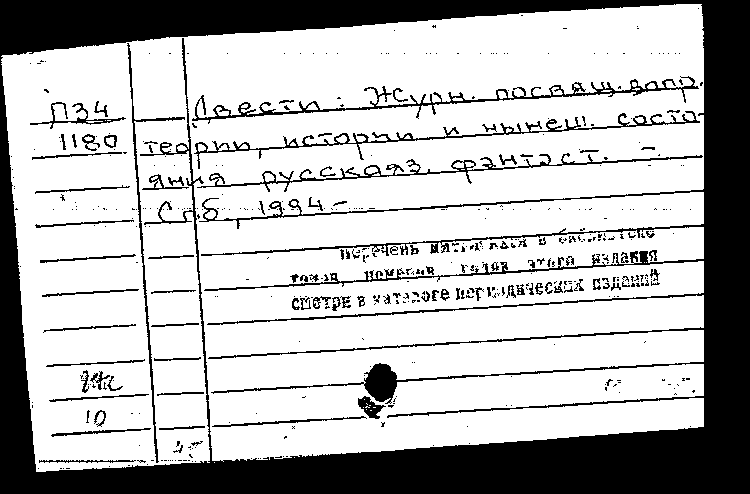 П34 Двести: Журн. посвящ. вопр.
1180 теории, истории и нынеш. состо-
яния русскояз. фантаст. -
Спб., 1994 -
перечень имеющихся в библиотеке
томов, номеров, годов этого издания
смотри в каталоге периодических изданий
10